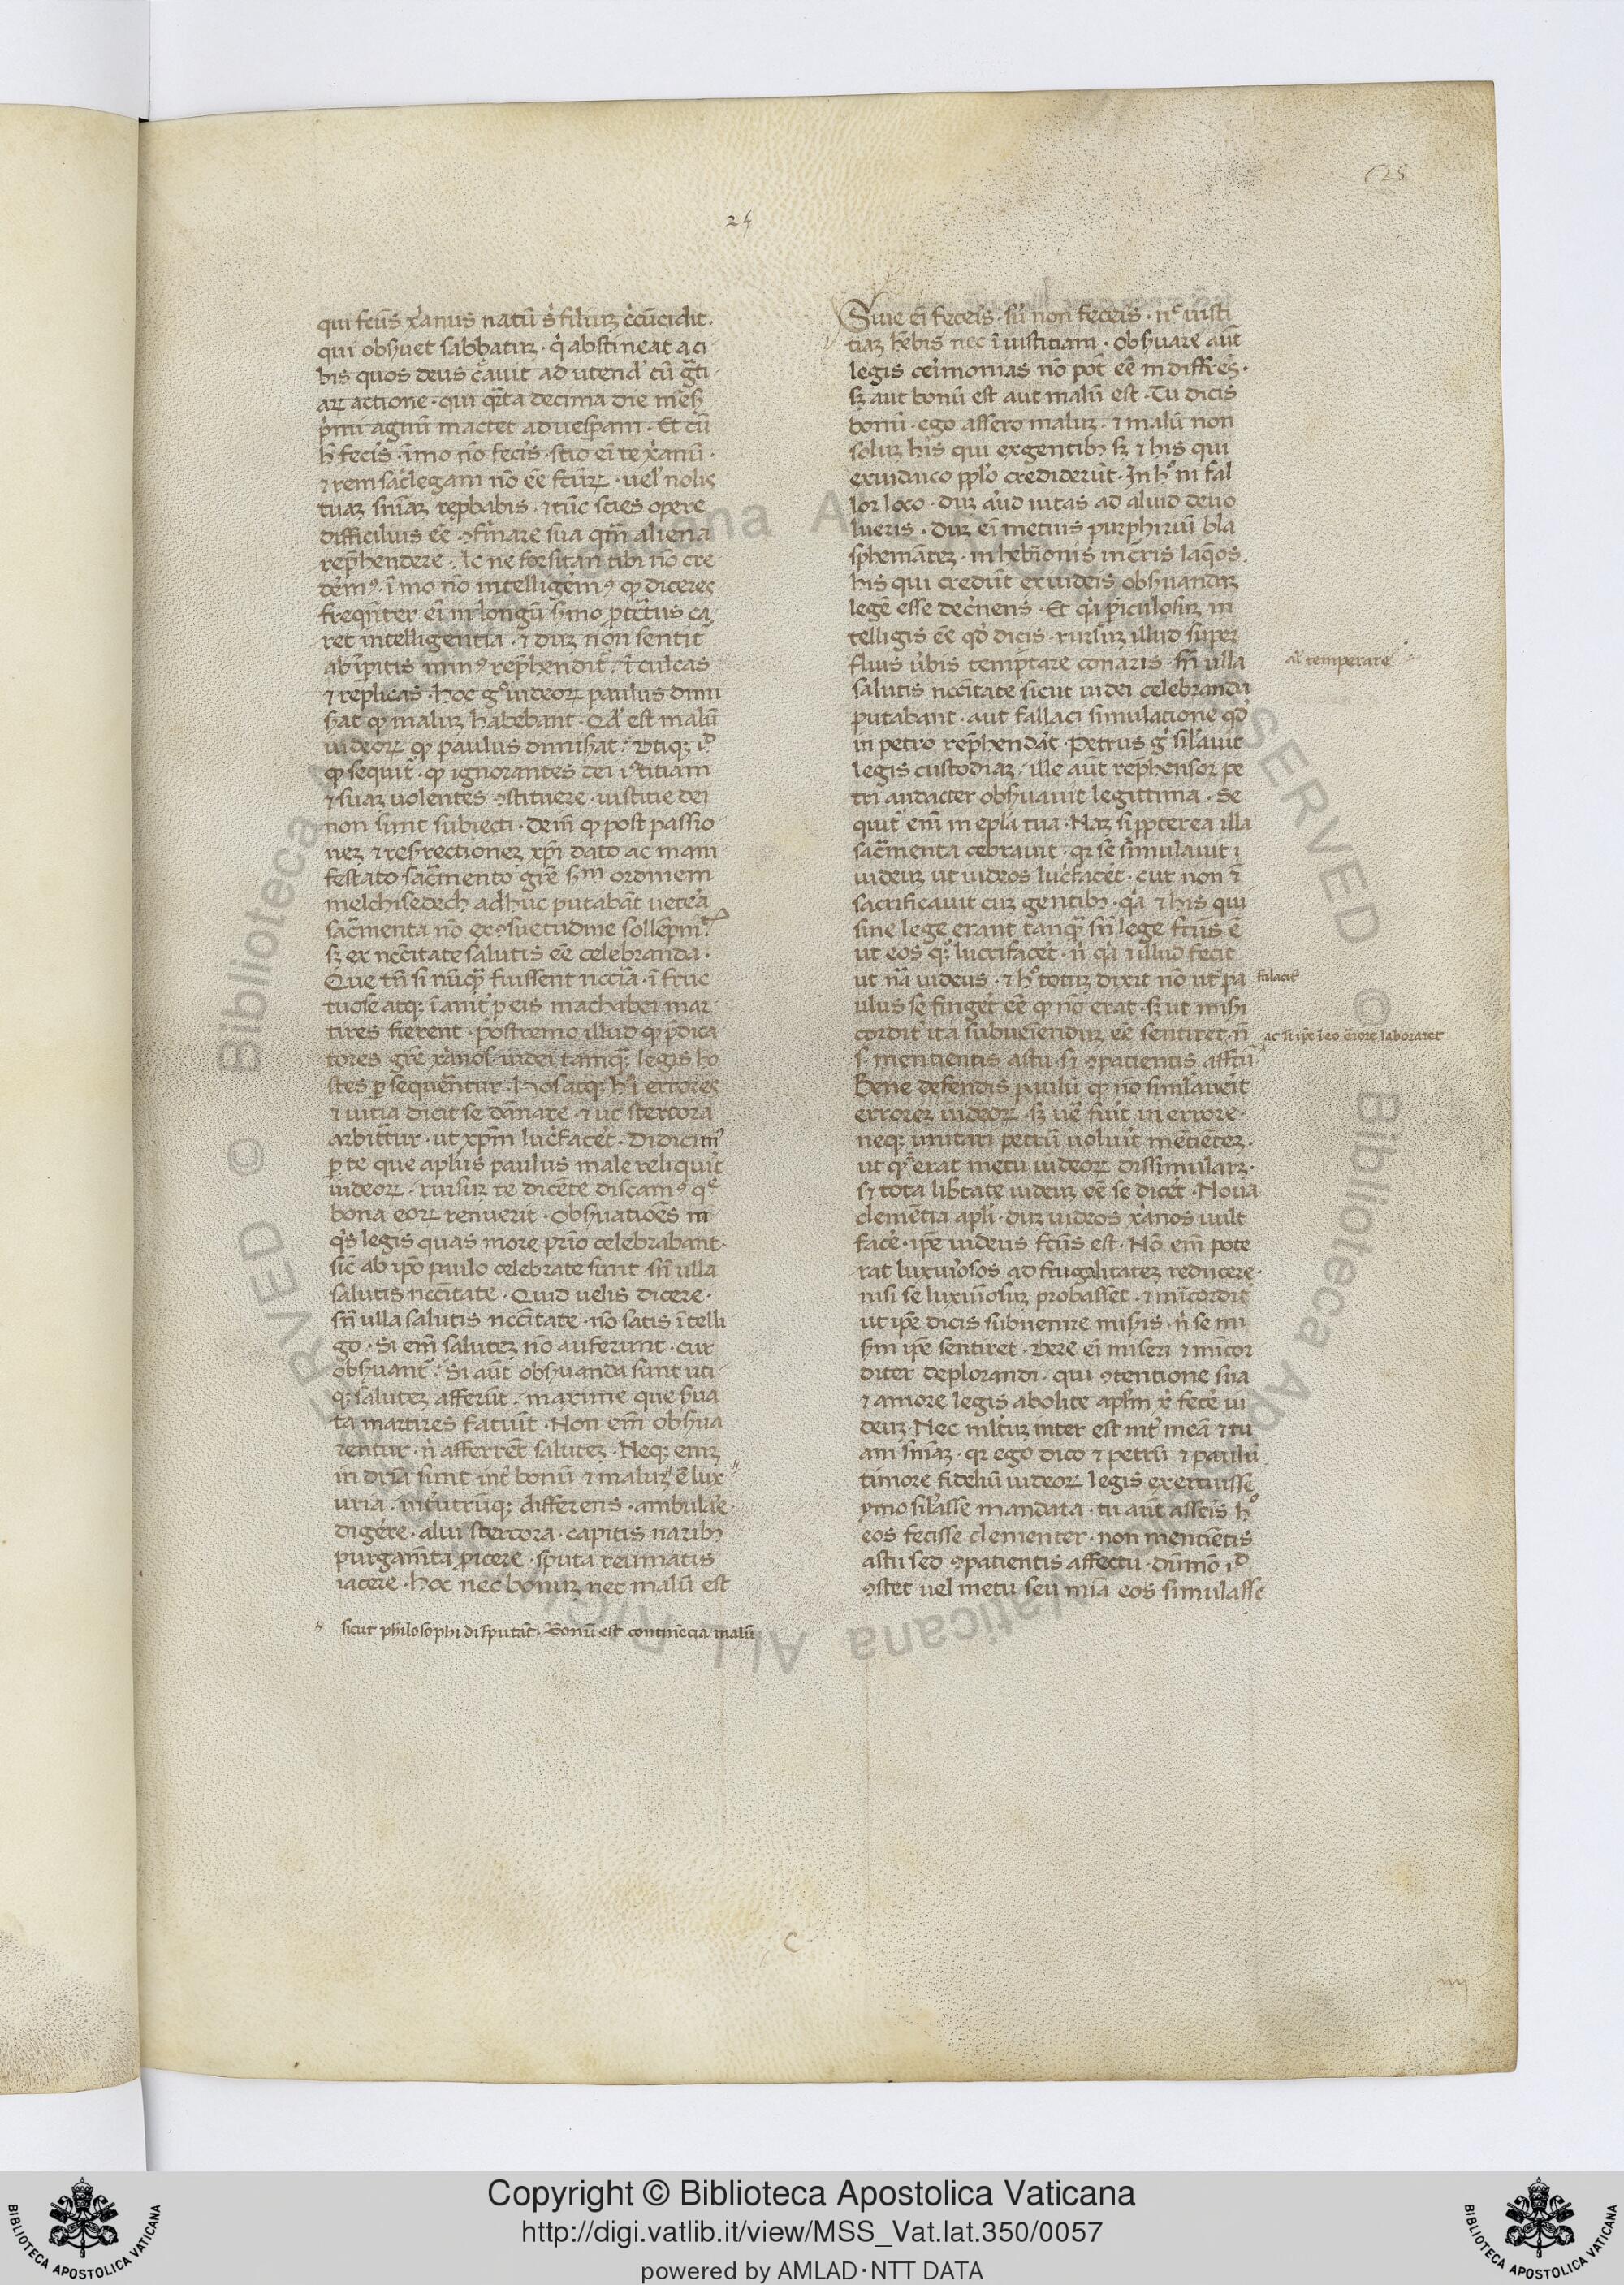 25
24
qui fctūs xp̄ianus natū s̄ filiuꝫ c̄cūcidit.
qui obẜuet sabbatuꝫ · q̓ abstineat a ci
bis quos deus c̓auit ad utend̓ cū gr̄ti
aꝝ actione · qui qr̄ta decima die mēẜ
p̓mi agnū mactet ad uesꝑam · Et cū
h̄ fecis̓ · īmo nō fecis̓ · scio ei̅ te xp̄ianū ·
⁊ rem sac̓legam nō eē fctūꝝ · uel̓ nolis
tuaꝫ sn̄iaꝫ rep̱babis · ⁊ tūc scies opere
difficilius eē · ꝯfirmare sua qm̄ aliena
rep̄hendere · Ac ne forsitan tibi nō cre
dem̓ꝰ · īmo nō intelligem̓ꝰ qđ diceres
freqn̄ter ei̅ in longū ẜmo p̱tctus ca
ret intelligentia · ⁊ duꝫ non sentit̄
ab īpitis minꝰ rep̄hendit̄ · īculcas
⁊ replicas · Hoc gͦ iudeoꝝ paulus dimi
ẜat qđ maluꝫ habebant · Qđ est malū
iudeoꝝ qđ paulus dimiẜat · Vtiqꝫ iđ
qđ sequit̄ · qđ ignorantes dei iꝰtitiam
⁊ suaꝫ uolentes ꝯstituere · iustitie dei
non sunt subiecti · Dein̄ qđ post passio
neꝫ ⁊ resẜrectioneꝫ xp̄i dato ac mani
festato sac̄mento gr̄e ẜm ordinem
melchisedech adhuc putabāt uetēa
sac̄menta nō ex ꝯsuetudine sollēpni
sꝫ ex nccītate salutis eē celebranda ·
Que tn̄ si nūqꝫ fuissent nccīa · ī fruc
tuose atqꝫ īanit̓ p̱ eis machabei mar
tires fierent · postremo illud qđ p̄dica
tores gr̄e xp̄ianos · iudei tamqꝫ legis ho
stes ꝑsequerentur · Hos atqꝫ hͦi errores
⁊ uitia dicit se dānare · ⁊ ut stercora
arbitr̄tur · ut xp̄m luc̓facet̓ · Didicimꝰ
ꝑ te que apl̓us paulus male reliquit̓
iudeoꝝ · rursuꝫ te dicēte discamꝰ qͤ
bona eoꝝ tenuerit · Obẜuatiōes in
q̓s legis quas more pr̄io celebrabant ·
sic̄ ab ip̄o paulo celebrate sunt sn̄ ulla
salutis nccītate · Quid uelis dicere ·
sn̄ ulla salutis nccītate · nō satis ītelli
go · Si em̄ saluteꝫ nō auferunt · cur
obẜuant̄ · Si aūt obẜuanda sunt uti
qꝫ saluteꝫ afferūt · maxime que ẜua
ta martires faciūt · Non em̄ obẜua
rentur · n̓ afferrēt saluteꝫ · Neqꝫ emꝫ
indr̄ia sunt int̓ bonū ⁊ maluꝫ ē lux
uria · int̓utrūqꝫ differens · ambulare ·
digere · alui stercora · capitis naribꝫ
purgam̄ta p̱icere · sputa reumatis
iacere · Hoc nec bonuꝫ nec malū est
sicut philosophi disputāt · Bonū est continēcia malū
Siue ei̅ fecēis · siū non fecēis · nͤ iusti
tiaꝫ h̄ebis nec ī iustitiam · Obẜuare aūt
legis ceīmonias nō pōt eē in diffr̄eſ ·
sꝫ aut bonū est aut malū est · Tu dicis
bonū · ego assero maluꝫ · ⁊ malū non
soluꝫ his qui ex gentibꝫ sꝫ ⁊ his qui
ex iudaico pp̱lo crediderūt · In hͦ ni fal
lor loco · duꝫ aīud uitas ad aliud deuo
lueris · Duꝫ ei̅ metuis purphiriū bla
sphemātеꝫ · in hebīonis incr̄is laq̓os ·
his qui credūt ex iudeis obẜuandaꝫ
legē esse dec̓nens · Et q̓a piculosuꝫ in
telligis eē qđ dicis · rursuꝫ illud super
fluis ūbis temp̄tare conaris · sn̄ ulla
al̓ temperare
salutis nccītate sicut iudei celebranda
putabant · aut fallaci simulatione qđ
in petro rep̄hendāt · Petrus g̓ sil̓auit
legis custodiaꝫ · ille aūt rep̄hensor pe
tri audacter obẜuauit legittima · Se
quit̄ em̄ in epl̓a tua · Naꝫ si pp̱terea illa
sac̄menta cebrauit · qꝛ se simulauit ⁊
iudeuꝫ ut iudeos luc̓facet̓ · cur non ⁊
sacrificauit cuꝫ gentibꝫ · q̓a ⁊ his qui
sine lege erant tanqꝫ sn̄ lege fctūs ē
ut eos qꝫ lucrifacet̓ · n̓ q̓a ⁊ illud fecit
ut nā iudeus · ⁊ hͦ totuꝫ dixit nō ut pa
falacit̓
ulus se finget̓ eē qđ nō erat · sꝫ ut misi
cordit̓ ita subueniendum eē sentiret · n̄
ac si ip̄e ī eo errore laboraret
s̓ mentientis astu · sꝫ ꝯpatientis affctū
Bene defendis paulū qđ nō similaueīt
erroreꝫ iudeoꝝ · sꝫ ue̓ fuīt in errore ·
neqꝫ imitati petrū uoluit mētiēteꝫ ·
ut qđ erat metu iudeoꝝ dissimularꝫ ·
sꝫ tota lib̄tate iudeuꝫ eē se dicet̓ · Noua
clemētia apl̓i · duꝫ iudeos xp̄ianos uult
face̓ · ip̄e iudeus fctūs est · Nō em̄ pote
rat luxuiosos ad frugalitateꝫ reducere ·
nisi se luxuiosuꝫ probasset · ⁊ mīcordit̓
ut ip̄e dicis subuenire miẜis · n̓ se mi
ẜm ip̄e sentiret · Vere ei̅ miseri ⁊ mīcor
diter deplorandi · qui ꝯtentione sua
⁊ amore legis abolite apl̓m xp̄i fece̓ iu
deuꝫ · Nec ml̓tuꝫ inter est int̓ meā ⁊ tu
am sn̄iaꝫ · qꝛ ego dico ⁊ petrū ⁊ paulū
timore fideliū iudeoꝝ legis exercuisse
ymo sil̓asse mandata · tu aūt asseīs hͦ
eos fecisse clementer · non mentiētis
astu sed ꝯpatientis affectu · Dūmō iđ
ꝯstet uel metu seu mīa eos simulasse
C
Copyright © Biblioteca Apostolica Vaticana
http://digi.vatlib.it/view/MSS_Vat.lat.350/0057
powered by AMLAD·NTT DATA
BIBLIOTECA APOSTOLICA VATICANA
BIBLIOTECA APOSTOLICA VATICANA